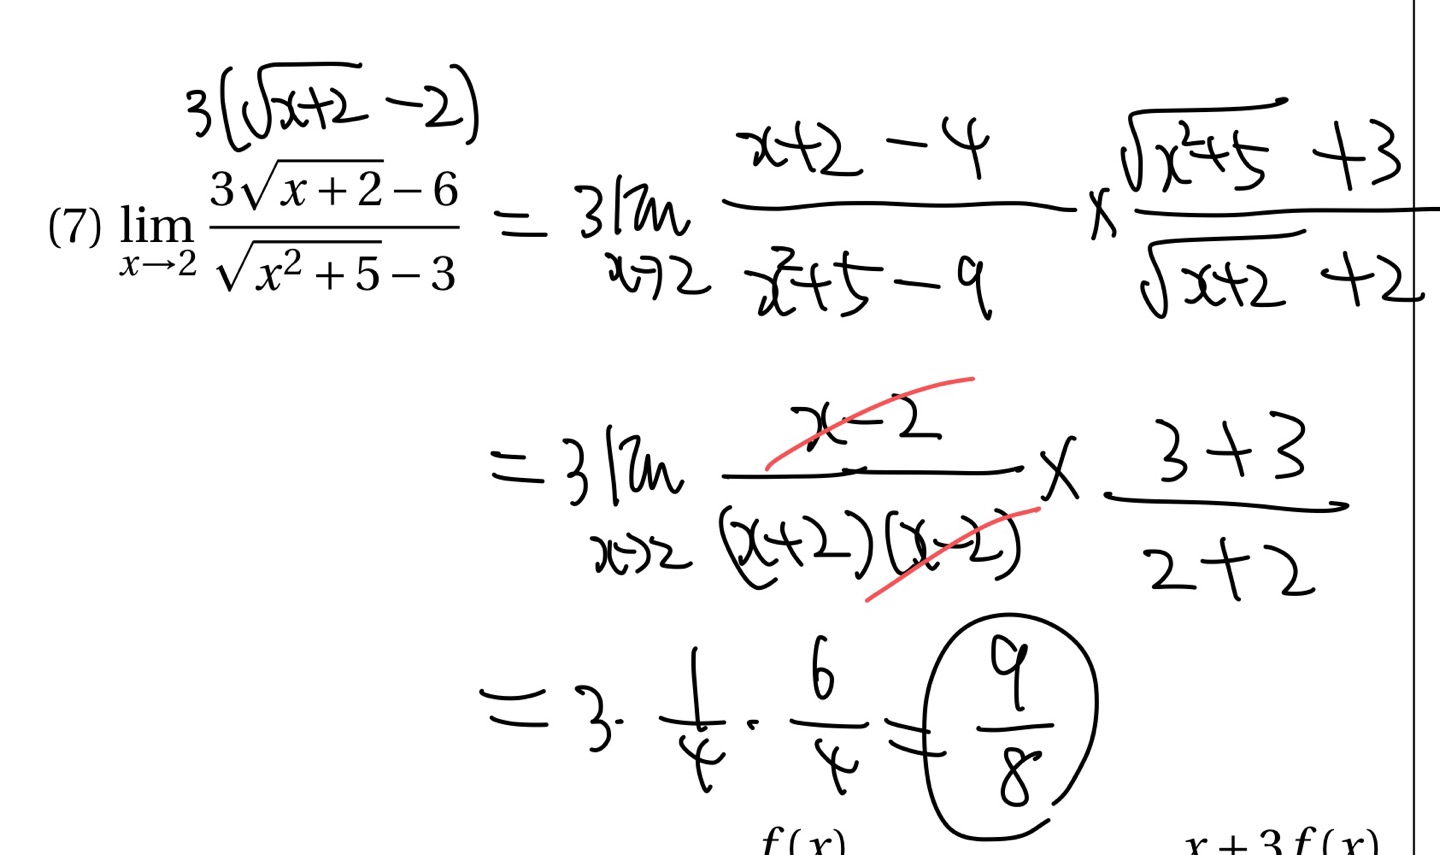 3(√(x+2) - 2)
(7) lim x→2 (3√(x+2) - 6)/(√(x² + 5) - 3) = 3 lim x→2 (x+2 - 4)/(x²+5 - 9) × (√(x²+5) + 3)/(√(x+2) + 2)
= 3 lim x→2 (x-2)/((x+2)(x-2)) × (3+3)/(2+2)
= 3 · 1/4 · 6/4 = 9/8
f(x) x + 3f(x)